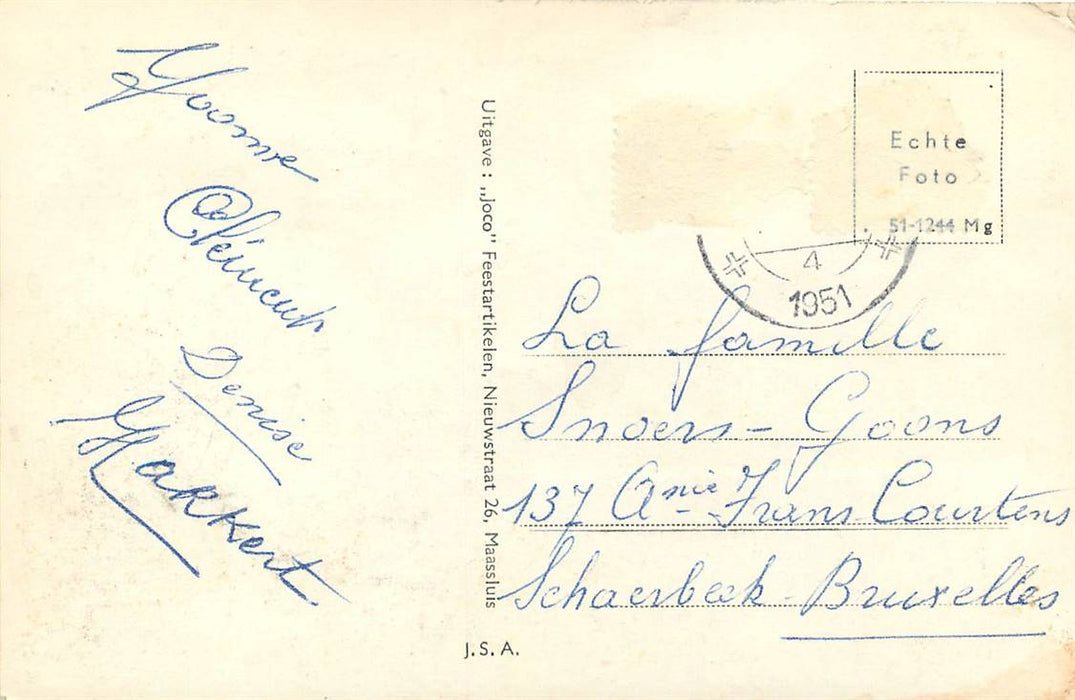 Denise
Uitgave : „Joco” Feestartikelen, Nieuwstraat 26, Maassluis
J.S.A.
Echte
Foto
51-1244 Mg
4
1951
La famille
Snoers - Goons
137 Anie Frans Courtens
Schaerbeek - Bruxelles